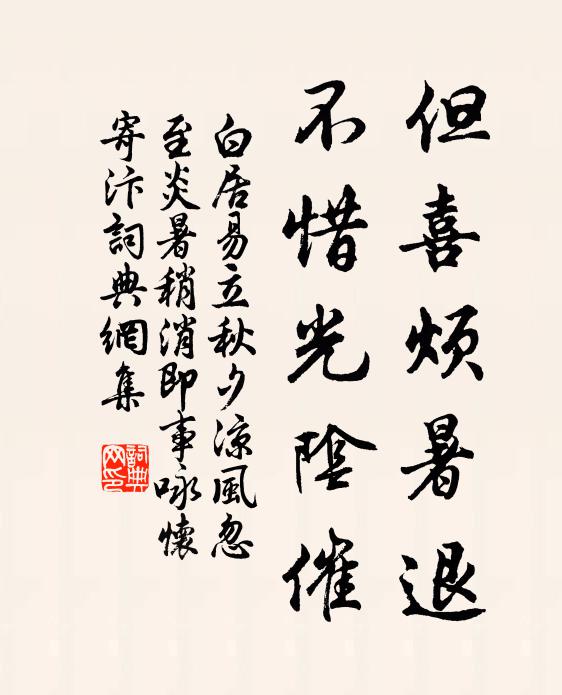 但喜烦暑退
不惜光陰催
白居易立秋夕凉風忽
至炎暑稍消即事咏懷
寄汴詞典網集
詞典網印